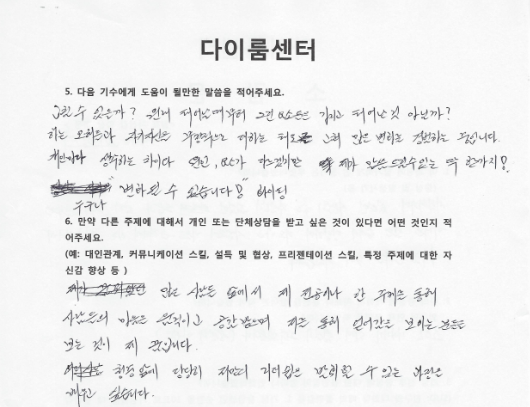 다이룸센터
5. 다음 기수에게 도움이 될만한 말씀을 적어주세요.
할 수 있을까? 원래 태어날때부터 그런 요소들은 가지고 태어난것 아닌가?
하는 오히려 적극적으로 대하는 태도 많은 변화를 경험하는
개인마다 생각하는 차이나 연연, 요소가 다르겠지만 제가 말씀드릴수있는 딱 한가지!
누구나 "변화 될 수 있습니다!" 화이팅
6. 만약 다른 주제에 대해서 개인 또는 단체상담을 받고 싶은 것이 있다면 어떤 것인지 적
어주세요.
(예: 대인관계, 커뮤니케이션 스킬, 설득 및 협상, 프리젠테이션 스킬, 특정 주제에 대한 자
신감 향상 등 )
많은 사람들 앞에서 제 전공이나 한 주제를 통해
사람들의 마음을 움직이고 공감 받으며 저를 통해 얻어감을 보이는
보는 것이 제 꿈입니다.
청중앞에 당당히 저만의 발휘할 수 있는 과정은
배우고 싶습니다.